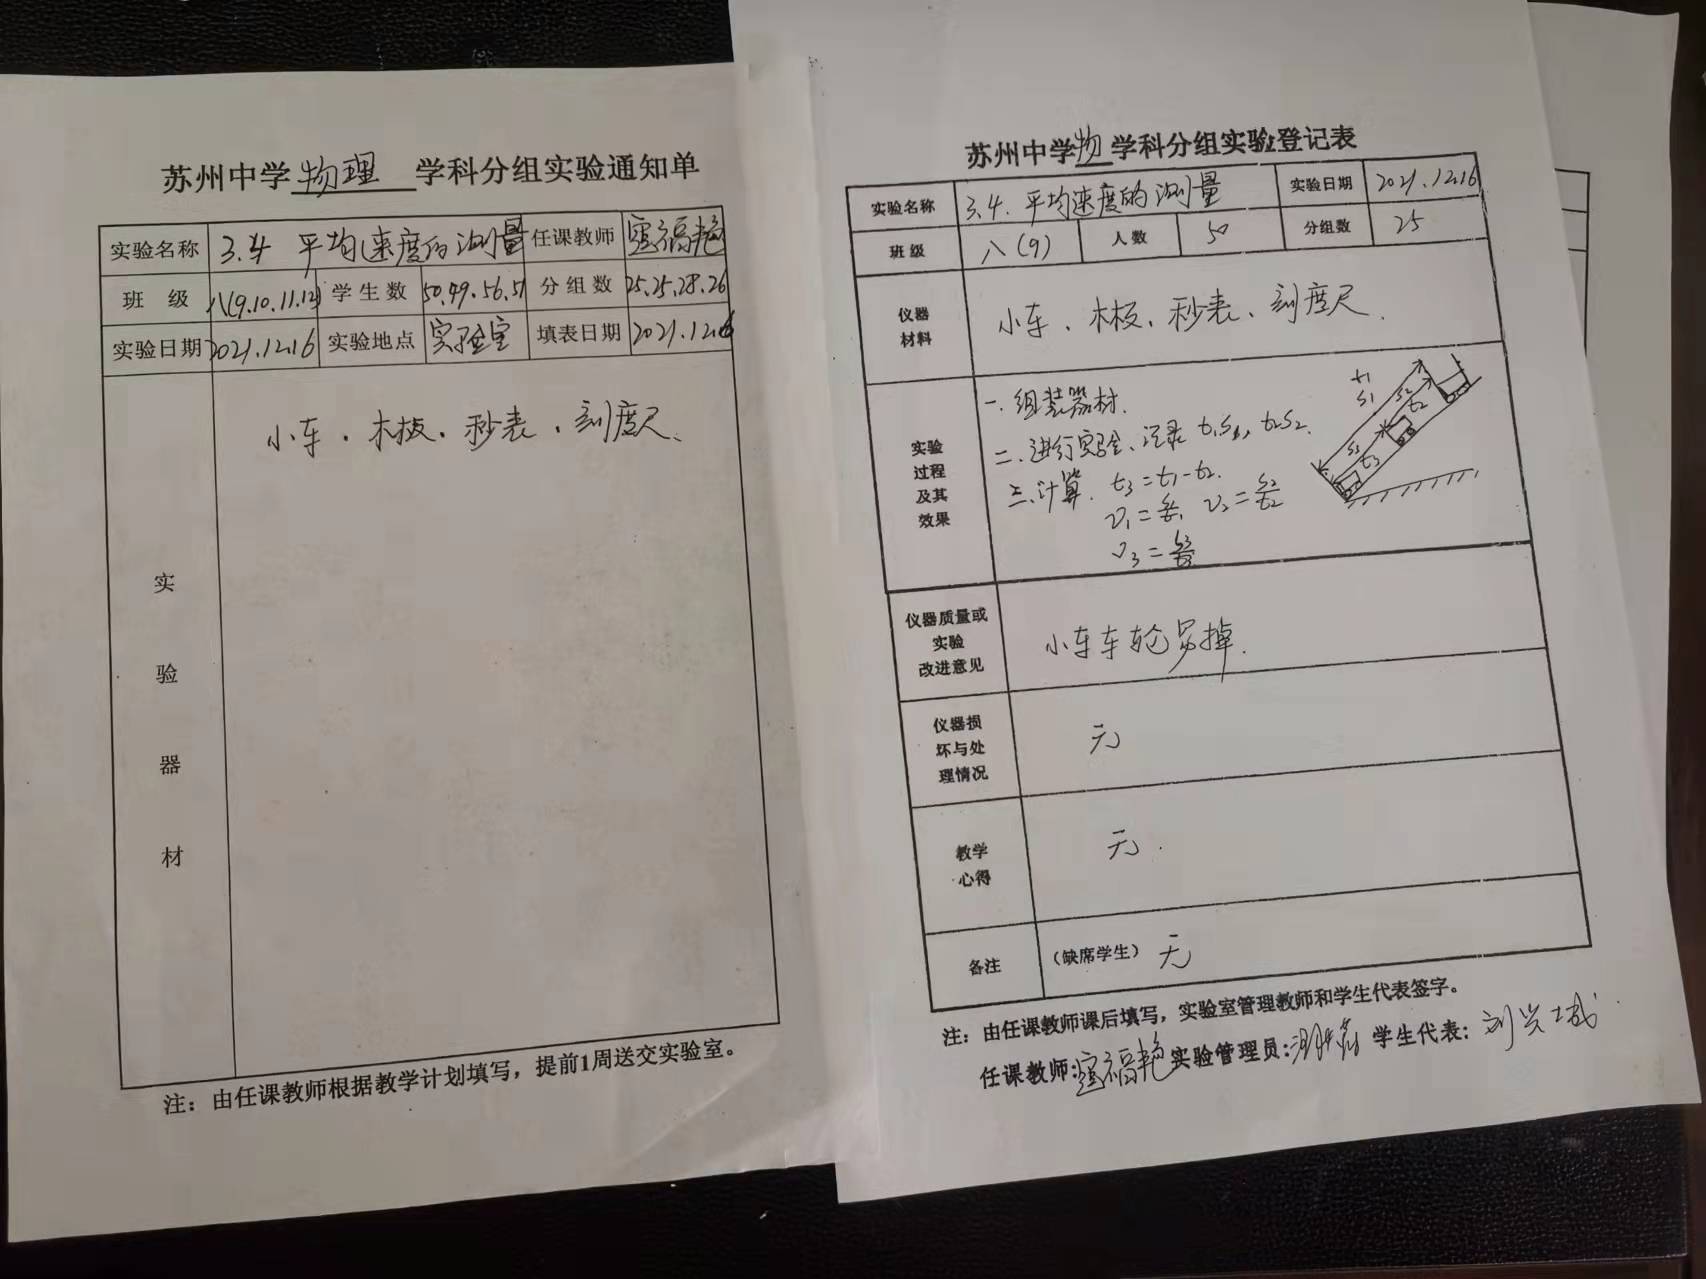 苏州中学物理学科分组实验通知单
实验名称 3.4 平均速度的测量 任课教师
班级 八(9.10.11.12) 学生数 50.49.56.51 分组数 25.25.28.26
实验日期 2021.12.16 实验地点 实验室 填表日期
实验器材
小车、木板、秒表、刻度尺、
注：由任课教师根据教学计划填写，提前1周送交实验室。
苏州中学物学科分组实验登记表
实验名称 3.4.平均速度的测量 实验日期 2021.12.16
班级 八(9) 人数 50 分组数 25
仪器
材料
小车、木板、秒表、刻度尺.
实验
过程
及其
效果
一.组装器材.
二.进行实验、记录 t₁S₁, t₂S₂.
三.计算. t₃=t₁-t₂.
v₁=s₁/t₁ v₂=s₂/t₂
v₃=s₃/t₃
t₁
S₁
S₂
t₂
S₃
t₃
仪器质量或
实验
改进意见
小车车轮易掉.
仪器损
坏与处
理情况
无
教学
心得
无.
备注 （缺席学生） 无
注：由任课教师课后填写，实验室管理教师和学生代表签字。
任课教师: 实验管理员: 学生代表: